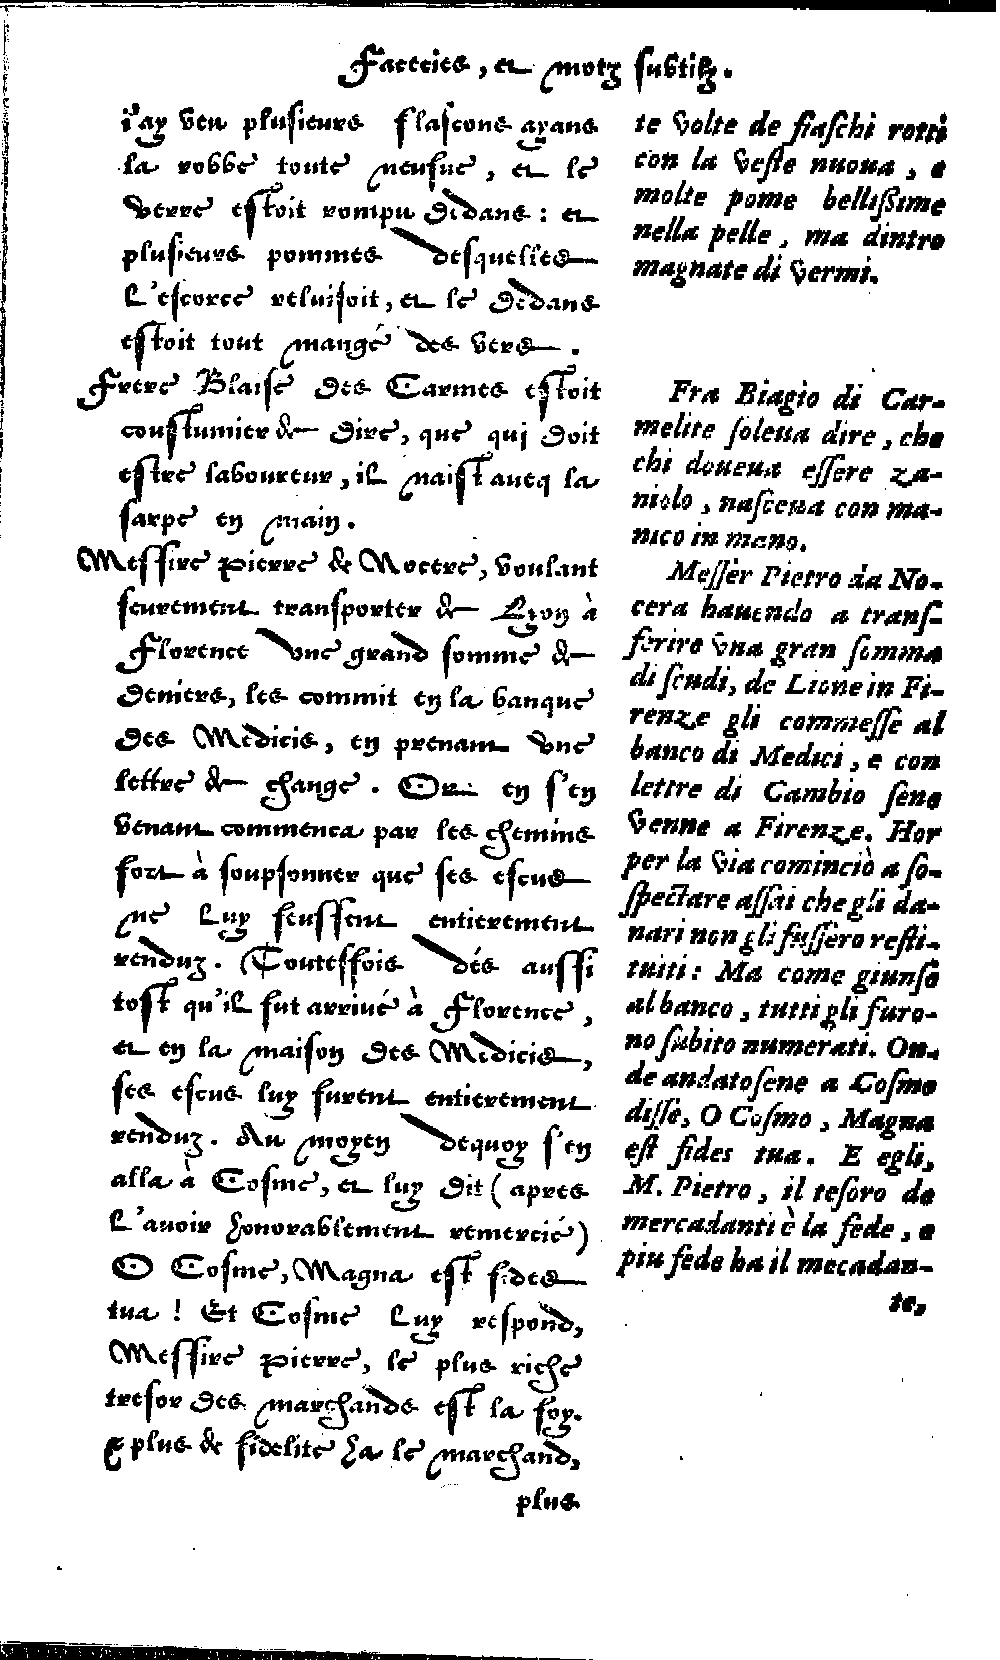 Faceties, et motz subtilz.
i'ay veu plusieurs flascons ayans
la robbe toute neufue, et le
verre estoit rompu dedans : et
plusieurs pommes desquelles
l'escorce reluisoit, et le dedans
estoit tout mangé des vers.
Frere Blaise des Carmes estoit
coustumier de dire, que qui doit
estre laboureur, il naist aueq la
sarpe en main.
Messire Pierre de Nocere, voulant
seurement transporter de Lyon à
Florence vne grand somme de
deniers, les commit en la banque
des Medicis, en prenant vne
lettre de change. Or en s'en
venant commenca par les chemins
fort à soupsonner que ses escus
ne luy feussent entierement
renduz. Toutesfois dés aussi
tost qu'il fut arriué à Florence,
et en la maison des Medicis,
ses escus luy furent entierement
renduz. Au moyen dequoy s'en
alla à Cosme, et luy dit (apres
l'auoir honorablement remercié)
O Cosme, Magna est fides
tua ! Et Cosme luy respond,
Messire Pierre, le plus riche
tresor des marchands est la foy.
& plus de fidelité ha le marchand,
plus
te volte de fiaschi rotti
con la veste nuoua, e
molte pome bellissime
nella pelle, ma dintro
magnate di vermi.
Fra Biagio di Car-
melite soleua dire, che
chi doueua essere za-
niolo, nasceua con ma-
nico in mano.
Messer Pietro da No-
cera hauendo a transf-
ferire vna gran somma
di scudi, de Lione in Fi-
renze gli commesse al
banco di Medici, e con
lettre di Cambio sene
venne a Firenze. Hor
per la via cominciò a so-
spectare assai che gli da-
nari non gli fussero resti-
tuiti: Ma come giunse
al banco, tutti gli furo-
no subito numerati. On-
de andatosene a Cosmo
disse, O Cosmo, Magna
est fides tua. E egli,
M. Pietro, il tesoro de
mercadanti è la fede, e
piu fede ha il mecadan-
te,